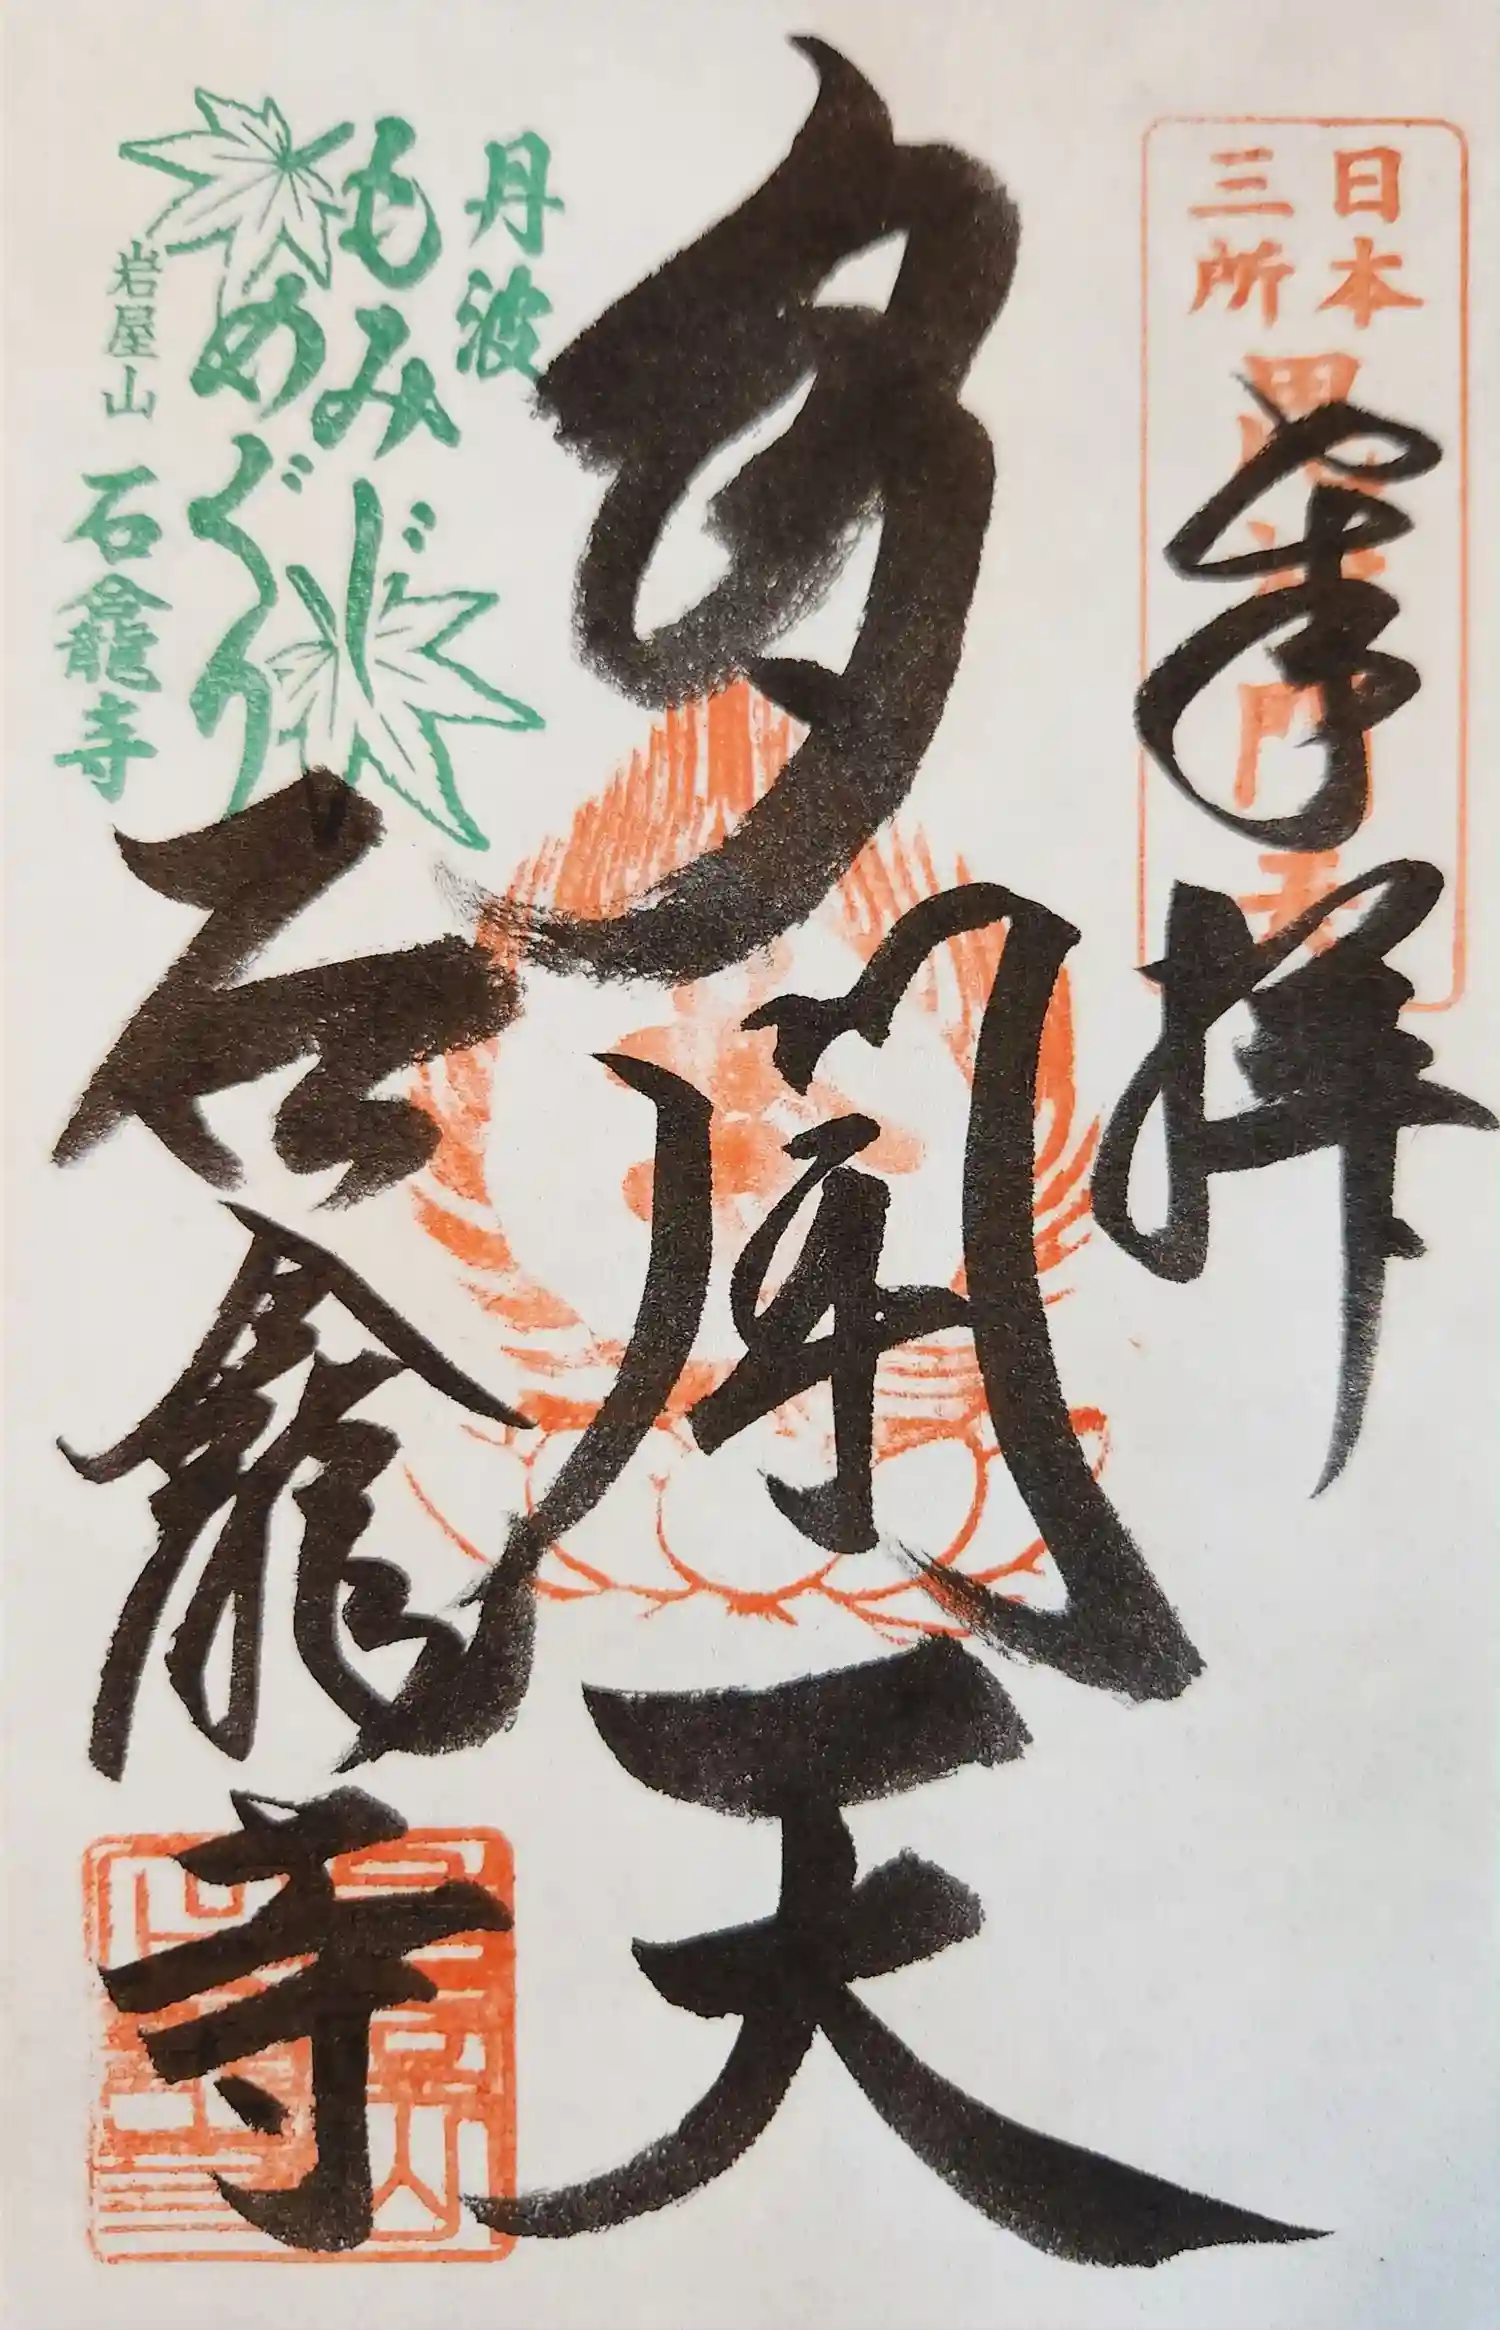 日本
三所
毘沙門天
奉拝
多聞天
石龕寺
丹波
もみじ
めぐり
岩屋山
石龕寺